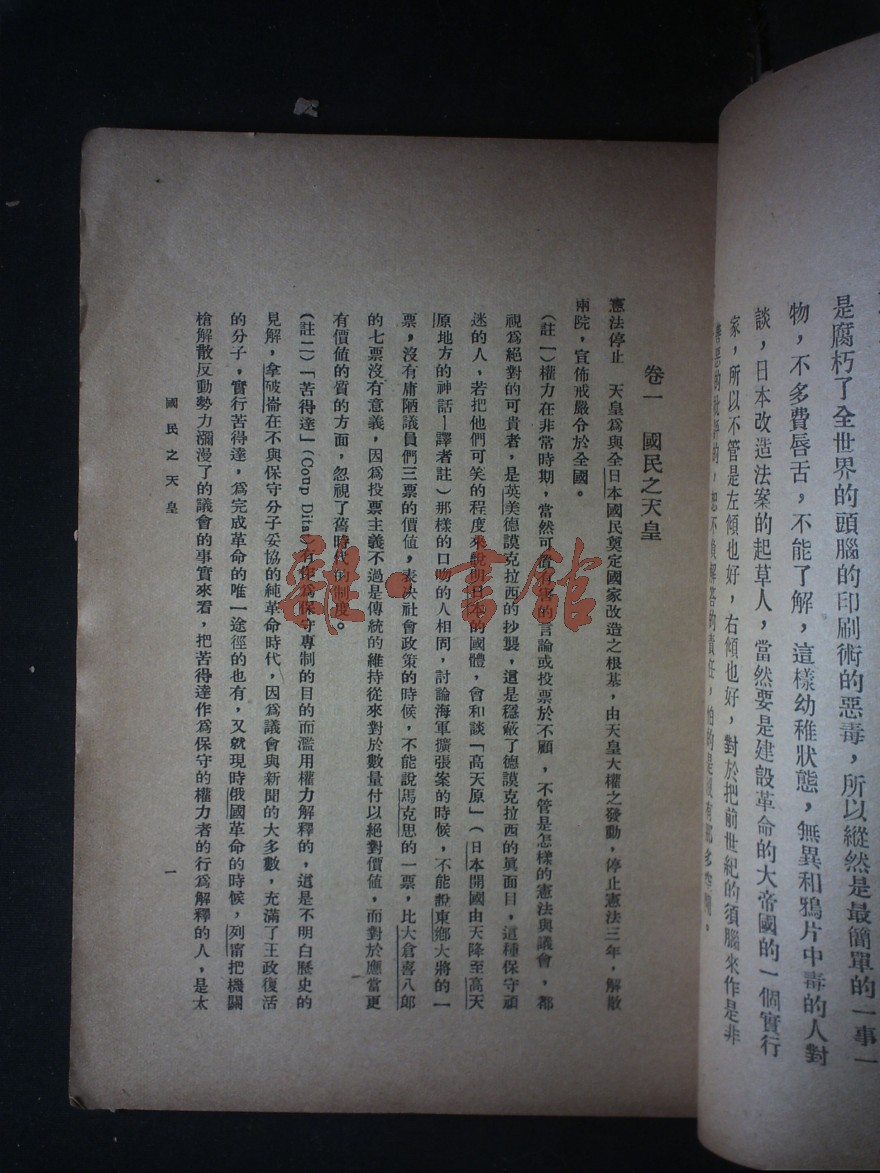 是腐朽了全世界的頭腦的印刷術的惡毒，所以縱然是最簡單的一事一
物，不多費唇舌，不能了解，這樣幼稚狀態，無異和鴉片中毒的人對
談，日本改造法案的起草人，當然要是建設革命的大帝國的一個實行
家，所以不管是左傾也好，右傾也好，對於把前世紀的須腦來作是非
善惡的批評的，恕不負解答的責任，怕的是沒有那多空閒。
卷一　國民之天皇
憲法停止　天皇爲與全日本國民奠定國家改造之根基，由天皇大權之發動，停止憲法三年，解散
兩院，宣佈戒嚴令於全國。
（註一）權力在非常時期，當然可置的言論或投票於不顧，不管是怎樣的憲法與議會，都
視爲絕對的可貴者，是英美德謨克拉西的抄製，這是穩蔽了德謨克拉西的眞面目，這種保守頑
迷的人，若把他們可笑的程度來說明日本的國體，會和談「高天原」（日本開國由天降至高天
原地方的神話—譯者註）那樣的口吻的人相同，討論海軍擴張案的時候，不能說東鄉大將的一
票，沒有庸陋議員們三票的價値，表決社會政策的時候，不能說馬克思的一票，比大倉喜八郎
的七票沒有意義，因爲投票主義不過是傳統的維持從來對於數量付以絕對價値，而對於應當更
有價値的質的方面，忽視了舊時代的制度。
（註二）「苦得達」(Coup Dita)有作爲保守專制的目的而濫用權力解釋的，這是不明白歷史的
見解，拿破崙在不與保守分子妥協的純革命時代，因爲議會與新聞的大多數，充滿了王政復活
的分子，實行苦得達，爲完成革命的唯一途徑的也有，又就現時俄國革命的時候，列甯把機關
槍解散反動勢力瀰漫了的議會的事實來看，把苦得達作爲保守的權力者的行爲解釋的人，是太
國民之天皇
一
雜·書館